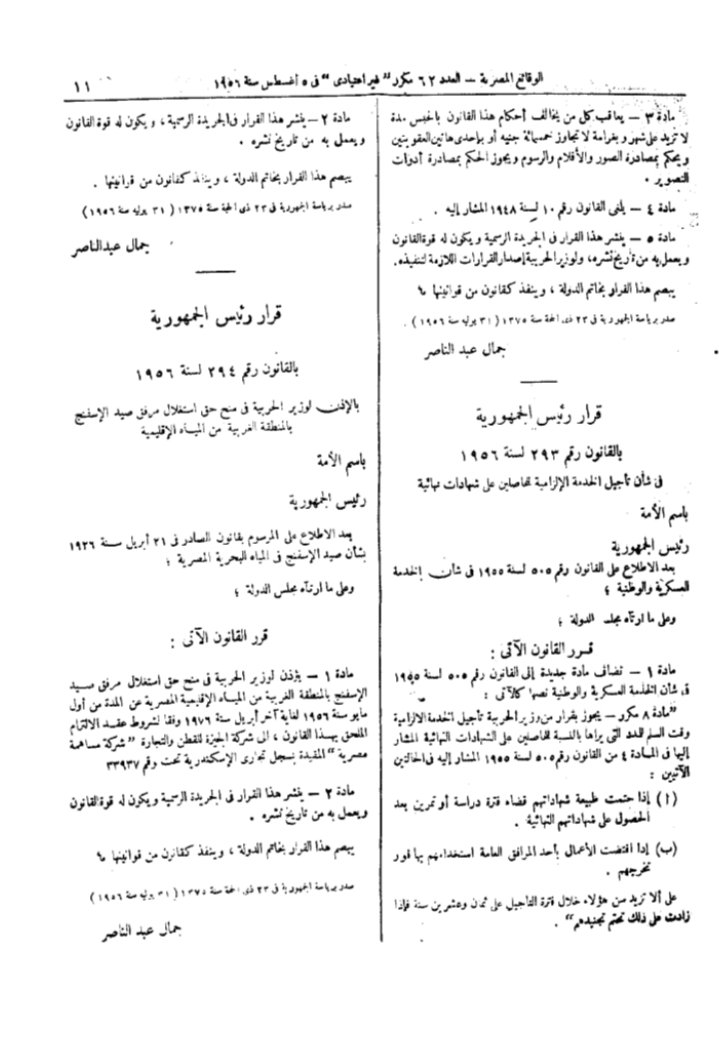 الوقائع المصرية – العدد ٦٢ مكرر "غير اعتيادى" فى ٥ أغسطس سنة ١٩٥٦
١١
مادة ٣ – يعاقب كل من يخالف أحكام هذا القانون بالحبس مدة
لا تزيد على شهر وبغرامة لا تجاوز خمسمائة جنيه أو بإحدى هاتين العقوبتين
ويحكم بمصادرة الصور والأفلام والرسوم ويجوز الحكم بمصادرة أدوات
التصوير .
مادة ٤ – يلغى القانون رقم ١٠ لسنة ١٩٤٨ المشار إليه .
مادة ٥ – ينشر هذا القرار فى الجريدة الرسمية ويكون له قوة القانون
ويعمل به من تاريخ نشره، ولوزير الحربية إصدار القرارات اللازمة لتنفيذه.
يبصم هذا القرار بخاتم الدولة ، وينفذ كقانون من قوانينها
صدر برياسة الجمهورية فى ٢٣ ذى الحجة سنة ١٣٧٥ (٣١ يوليه سنة ١٩٥٦) .
جمال عبد الناصر
قرار رئيس الجمهورية
بالقانون رقم ٢٩٣ لسنة ١٩٥٦
فى شأن تأجيل الخدمة الإلزامية للحاصلين على شهادات نهائية
باسم الأمة
رئيس الجمهورية
بعد الاطلاع على القانون رقم ٥٠٥ لسنة ١٩٥٥ فى شأن الخدمة
العسكرية والوطنية ؛
وعلى ما ارتآه مجلس الدولة ؛
قرر القانون الآتى :
مادة ١ – تضاف مادة جديدة إلى القانون رقم ٥٠٥ لسنة ١٩٥٥
فى شأن الخدمة العسكرية والوطنية نصها كالآتى :
"مادة ٨ مكرر – يجوز بقرار من وزير الحربية تأجيل الخدمة الالزامية
وقت السلم للمدد التى يراها بالنسبة للحاصلين على الشهادات النهائية المشار
إليها فى المادة ٤ من القانون رقم ٥٠٥ لسنة ١٩٥٥ المشار إليه فى الحالتين
الآتيين :
(ا) إذا حتمت طبيعة شهاداتهم قضاء فترة دراسة أو تمرين بعد
الحصول على شهاداتهم النهائية .
(ب) إذا اقتضت الأعمال بأحد المرافق العامة استخدامهم بها فور
تخرجهم .
على ألا تزيد سن هؤلاء خلال فترة التأجيل على ثمان وعشرين سنة فإذا
زادت على ذلك تحتم تجنيدهم" .
مادة ٢ – ينشر هذا القرار فى الجريدة الرسمية ، ويكون له قوة القانون
ويعمل به من تاريخ نشره .
يبصم هذا القرار بخاتم الدولة ، وينفذ كقانون من قوانينها .
صدر برياسة الجمهورية فى ٢٣ ذى الحجة سنة ١٣٧٥ (٣١ يوليه سنة ١٩٥٦)
جمال عبد الناصر
قرار رئيس الجمهورية
بالقانون رقم ٢٩٤ لسنة ١٩٥٦
بالإذن لوزير الحربية فى منح حق استغلال مرفق صيد الإسفنج
بالمنطقة الغربية من المياه الإقليمية
باسم الأمة
رئيس الجمهورية
بعد الاطلاع على المرسوم بقانون الصادر فى ٢١ أبريل سنة ١٩٢٦
بشأن صيد الإسفنج فى المياه البحرية المصرية ؛
وعلى ما ارتآه مجلس الدولة ؛
قرر القانون الآتى :
مادة ١ – يؤذن لوزير الحربية فى منح حق استغلال مرفق صيد
الإسفنج بالمنطقة الغربية من المياه الإقليمية المصرية عن المدة من أول
مايو سنة ١٩٥٦ لغاية آخر أبريل سنة ١٩٧٦ وفقا لشروط عقد الالتزام
الملحق بهذا القانون ، الى شركة الجيزة للقطن والتجارة "شركة مساهمة
مصرية" المقيدة بسجل تجارى الإسكندرية تحت رقم ٣٣٩٣٧
مادة ٢ – ينشر هذا القرار فى الجريدة الرسمية ويكون له قوة القانون
ويعمل به من تاريخ نشره .
يبصم هذا القرار بخاتم الدولة ، وينفذ كقانون من قوانينها
صدر برياسة الجمهورية فى ٢٣ ذى الحجة سنة ١٣٧٥ (٣١ يوليه سنة ١٩٥٦)
جمال عبد الناصر